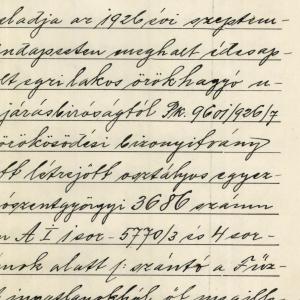 eladja az 1926 évi szeptem-
udapesten meghalt édesap-
lt egri lakos örökhagyó u-
járásbiróságtól Pk. 9601/926/7
örökösödési bizonyitvány
tt létrejött osztályos egyez-
ószentgyörgyi 3686 számu
n A I 1 sor - 5770/3 és 4 sor-
ámok alatt f: szántó a Füz-
t ingatlanokból öt